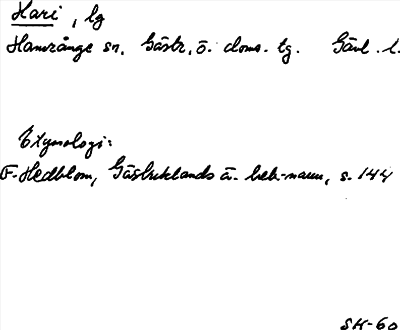 Hari, lg
Hamrånge sn, Gästr. ö. doms. tg. Gävl. l.
Etymologi:
F. Hedblom, Gästriklands ä. beb.-namn, s. 144
SK-60